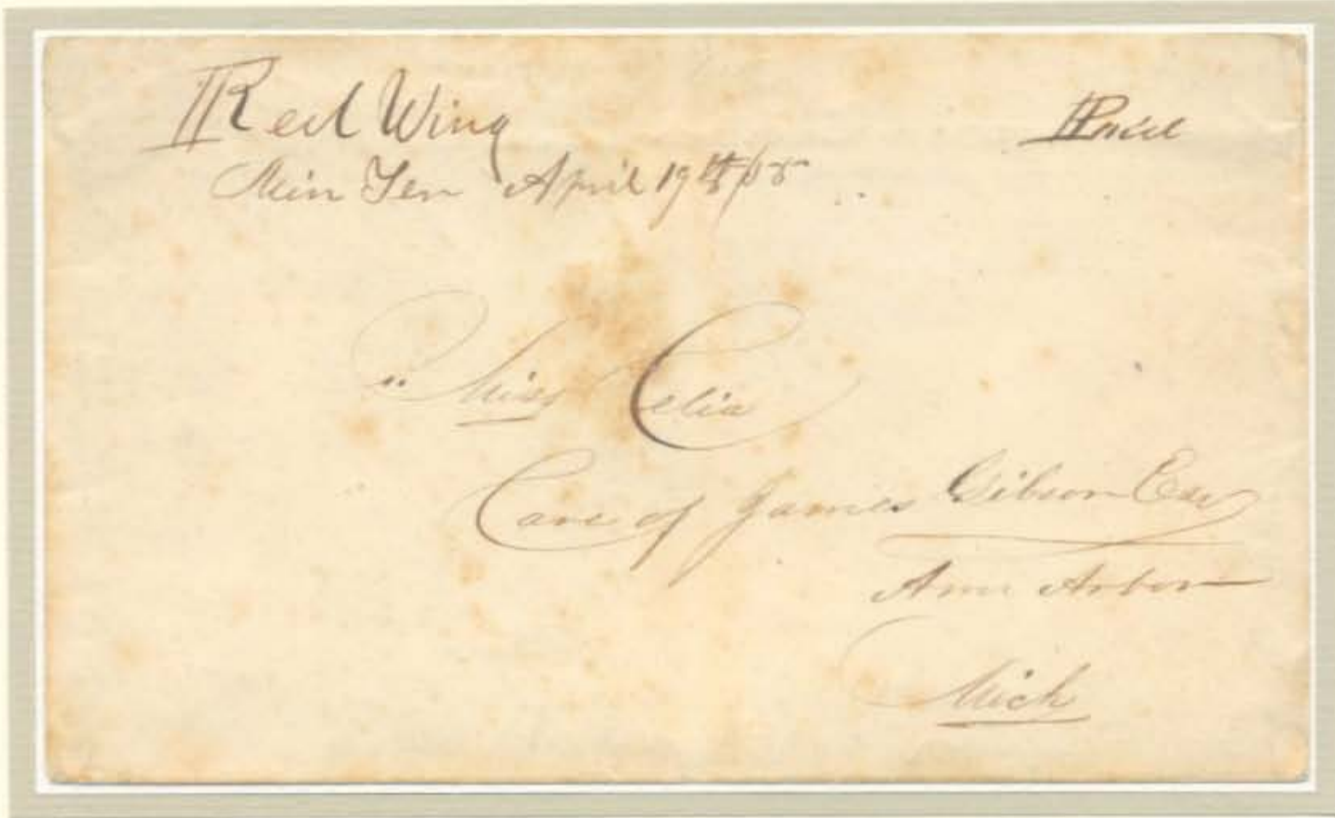 Red Wing
Paid
Min Ter April 19th/55
Miss Celia
Care of James Gibson Esq
Ann Arbor
Mich